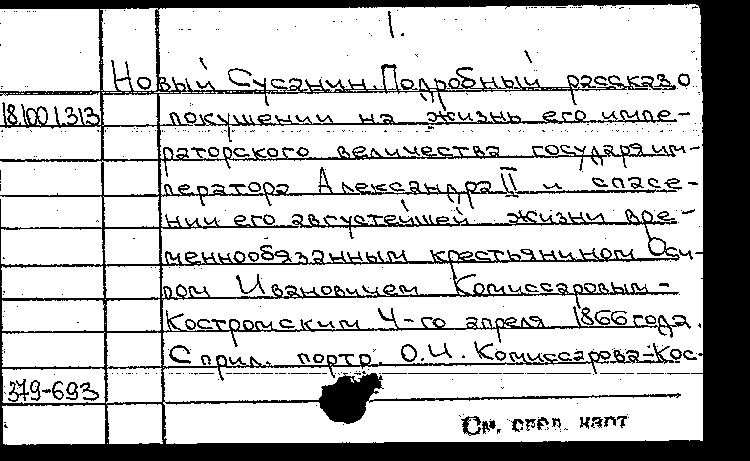 1.
Новый Сусанин. Подробный рассказ о
18.100.1.313
покушении на жизнь его импе-
раторского величества государя им-
ператора Александра II и спасе-
нии его августейшей жизни вре-
меннообязанным крестьянином Оси-
пом Ивановичем Комиссаровым-
Костромским 4-го апреля 1866 года.
С прил. портр. О.И. Комиссарова-Кос-
379-693
См. след. карт